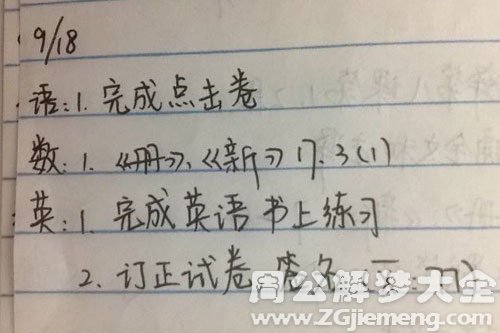 9/18
语:1. 完成点击卷
数:1. 《册》,《新》17.3(1)
英:1. 完成英语书上练习
2. 订正试卷,签名
周公解梦大全
www.ZGjiemeng.com